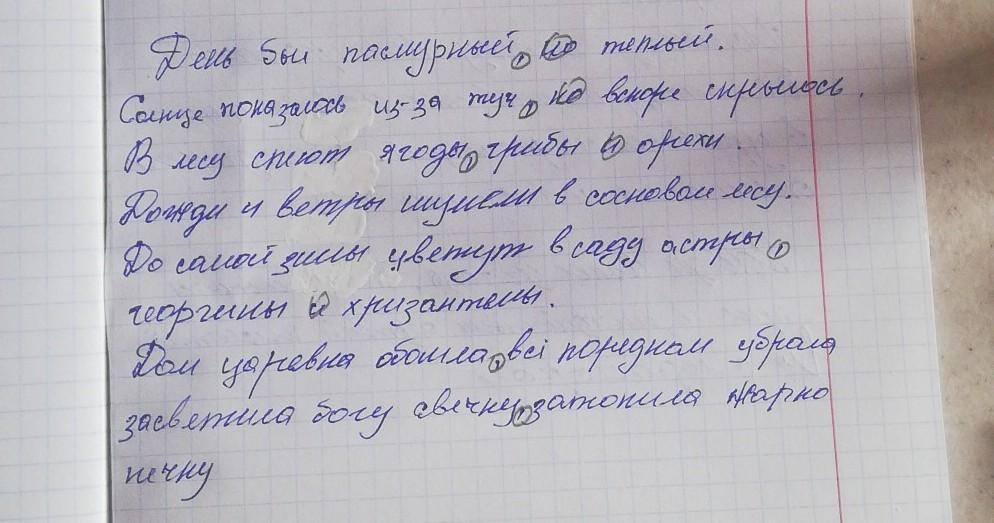 День был пасмурный, но теплый.
Солнце показалось из-за туч, но вскоре скрылось.
В лесу спеют ягоды, грибы и орехи.
Дожди и ветры шумели в сосновом лесу.
До самой зимы цветут в саду астры,
георгины и хризантемы.
Дом царевна обошла, всё порядком убрала
засветила богу свечку, затопила жарко
печку